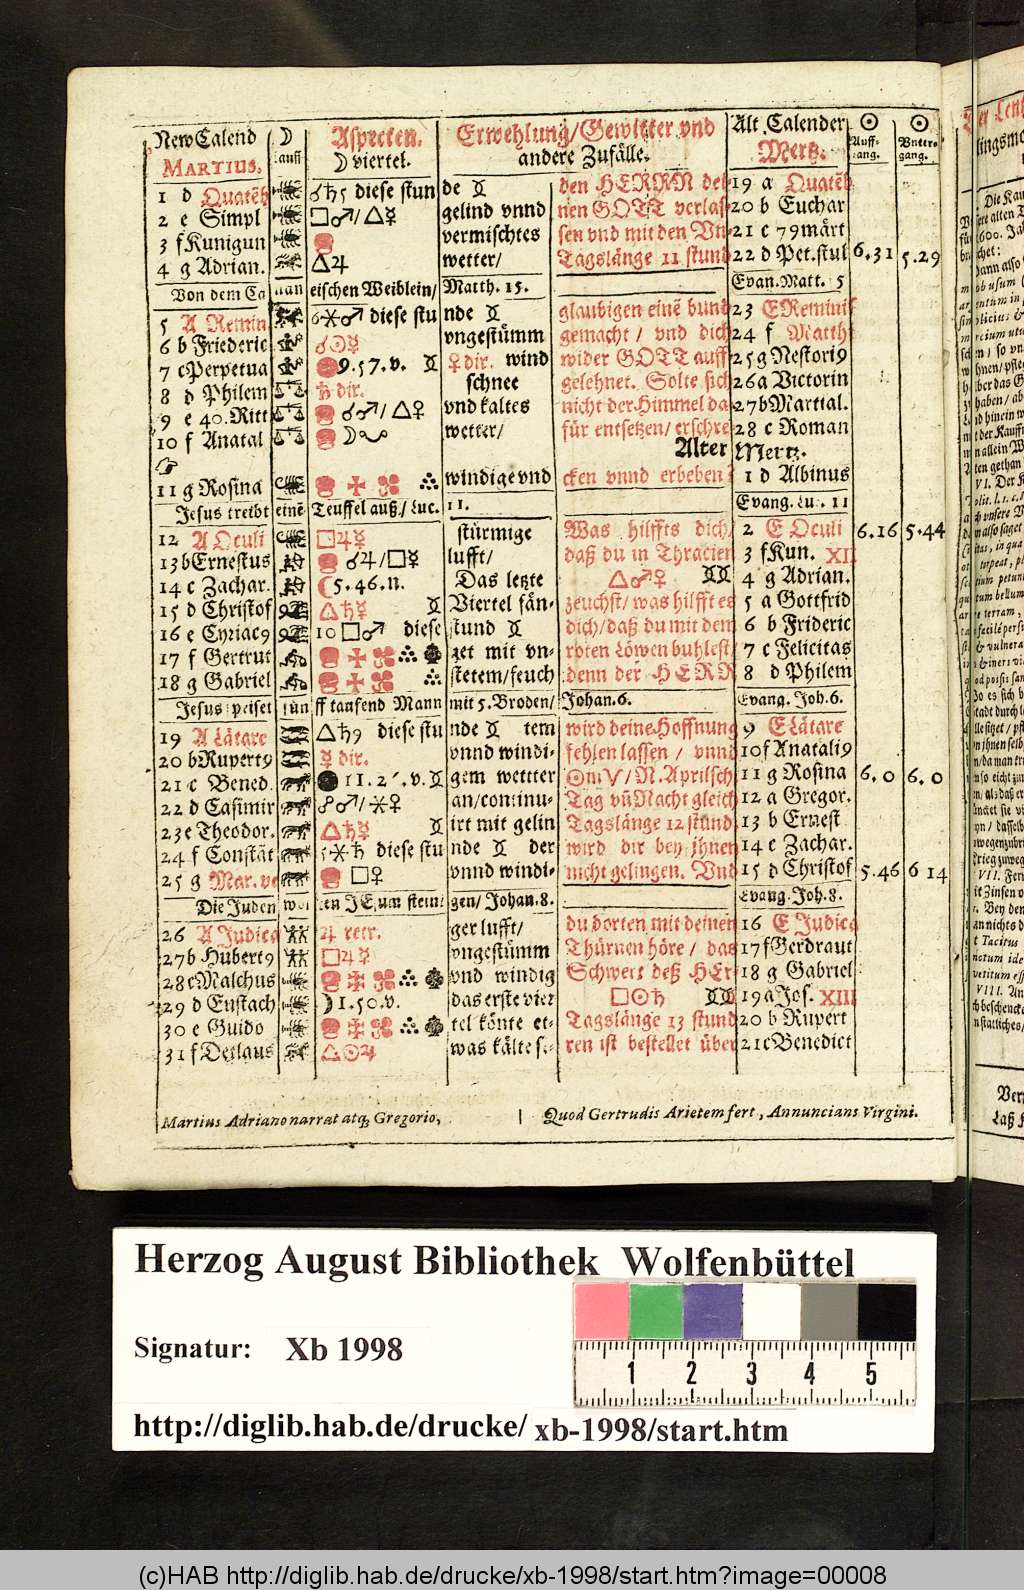 New Calend ☽ Aspecten. Erwehlung/Gewitter vnd Alt Calender ☉ ☉
MARTIUS. lauff ☽ viertel. andere Zufälle. Mertz. Auff-gang. Vnter-gang.
1 d Quatẽb ☌♄ 5 diese stun de ♊ den HERRN dei 19 a Quatẽb
2 e Simpl □♂/△☿ gelind vnnd nen GOTT verlas- 20 b Euchar
3 f Kunigun vermischtes sen vnd mit den Vn- 21 c 79 märt
4 g Adrian. △♃ wetter/ Tagslänge 11 stund 22 d Pet. stul 6.31 5.29
Von dem Ca nan eischen Weiblein/ Matth. 15. Evan. Matt. 5
5 A Remin. 6⚹♂ diese stu nde ♊ glaubigen einẽ bund 23 E Reminis
6 b Friederic ☌☉☿ vngestümm gemacht/ vnd dich 24 f Matth
7 c Perpetua 9.57.v. ♊ ♀ dir. wind wider GOTT auff 25 g Nestori9
8 d Philem ♄ dir. schnee gelehnet. Solte sich 26 a Victorin
9 e 40. Ritt ☌♂/△♀ vnd kaltes nicht der Himmel da 27 b Martial.
10 f Anatal ☽☊ wetter/ für entsetzen/ erschre 28 c Roman
☞ Alter Mertz.
11 g Rosina windige vnd cken vnnd erbeben? 1 d Albinus
Jesus treibt einẽ Teuffel auß/ Luc. 11. Evang. Lu. 11
12 A Oculi □♃☿ stürmige Was hilffts dich/ 2 E Oculi 6.16 5.44
13 b Ernestus ☌♃/□☿ lufft/ daß du in Thracien 3 f Kun. XII
14 c Zachar. ☾5.46.n. Das letzte △♂♀ ♊♊ 4 g Adrian.
15 d Christof △♄☿ ♊ Viertel fän- zeuchst/ was hilfft es 5 a Gottfrid
16 e Cyriac9 10 □♂ diese stund ♊ dich/ daß du mit dem 6 b Frideric
17 f Gertrut zet mit vn- roten Löwen buhlest/ 7 c Felicitas
18 g Gabriel stetem/feuch denn der HERR 8 d Philem
Jesus speiset fün ff tausend Mann mit 5. Broden/ Johan. 6. Evang. Joh. 6.
19 A Lätare △♄9 diese stu nde ♊ tem wird deine Hoffnung 9 E Lätare
20 b Rupert9 ☿ dir. vnnd windi- fehlen lassen/ vnnd 10 f Anatali9
21 c Bened. 11.2'.v. ♊ gem wettter ☉ in ♈/ N. Aprilsch 11 g Rosina 6.0 6.0
22 d Casimir ☍♂/⚹♀ an/continu- Tag vñ Nacht gleich 12 a Gregor.
23 e Theodor. △♄☿ ♊ irt mit gelin Tagslänge 12 stund 13 b Ernest
24 f Constãt 5⚹♄ diese stu nde ♊ der wird dir bey jhnen 14 c Zachar.
25 g Mar. ve □♀ vnnd windi- nicht gelingen. Vnd 15 d Christof 5.46 6 14
Die Juden wol ten JEsum steini gen/ Johan. 8. Evang. Joh. 8.
26 A Judica ♃ retr. ger lufft/ du dorten mit deinen 16 E Judica
27 b Hubert9 □♃☿ vngestümm Thürnen höre/ das 17 f Gerdraut
28 c Malchus vnd windig Schwert deß HEr 18 g Gabriel
29 d Eustach ☽1.50.v. das erste vier □☉♄ ♊♊ 19 a Jos. XIII
30 e Guido tel könte et- Tagslänge 13 stund 20 b Rupert
31 f Detlaus △☉♃ was kälte se. ren ist bestellet über 21 c Benedict
Martius Adriano narrat atq; Gregorio, | Quod Gertrudis Arietem fert, Annuncians Virgini.
Herzog August Bibliothek Wolfenbüttel
Signatur: Xb 1998
1 2 3 4 5
http://diglib.hab.de/drucke/ xb-1998/start.htm
(c)HAB http://diglib.hab.de/drucke/xb-1998/start.htm?image=00008